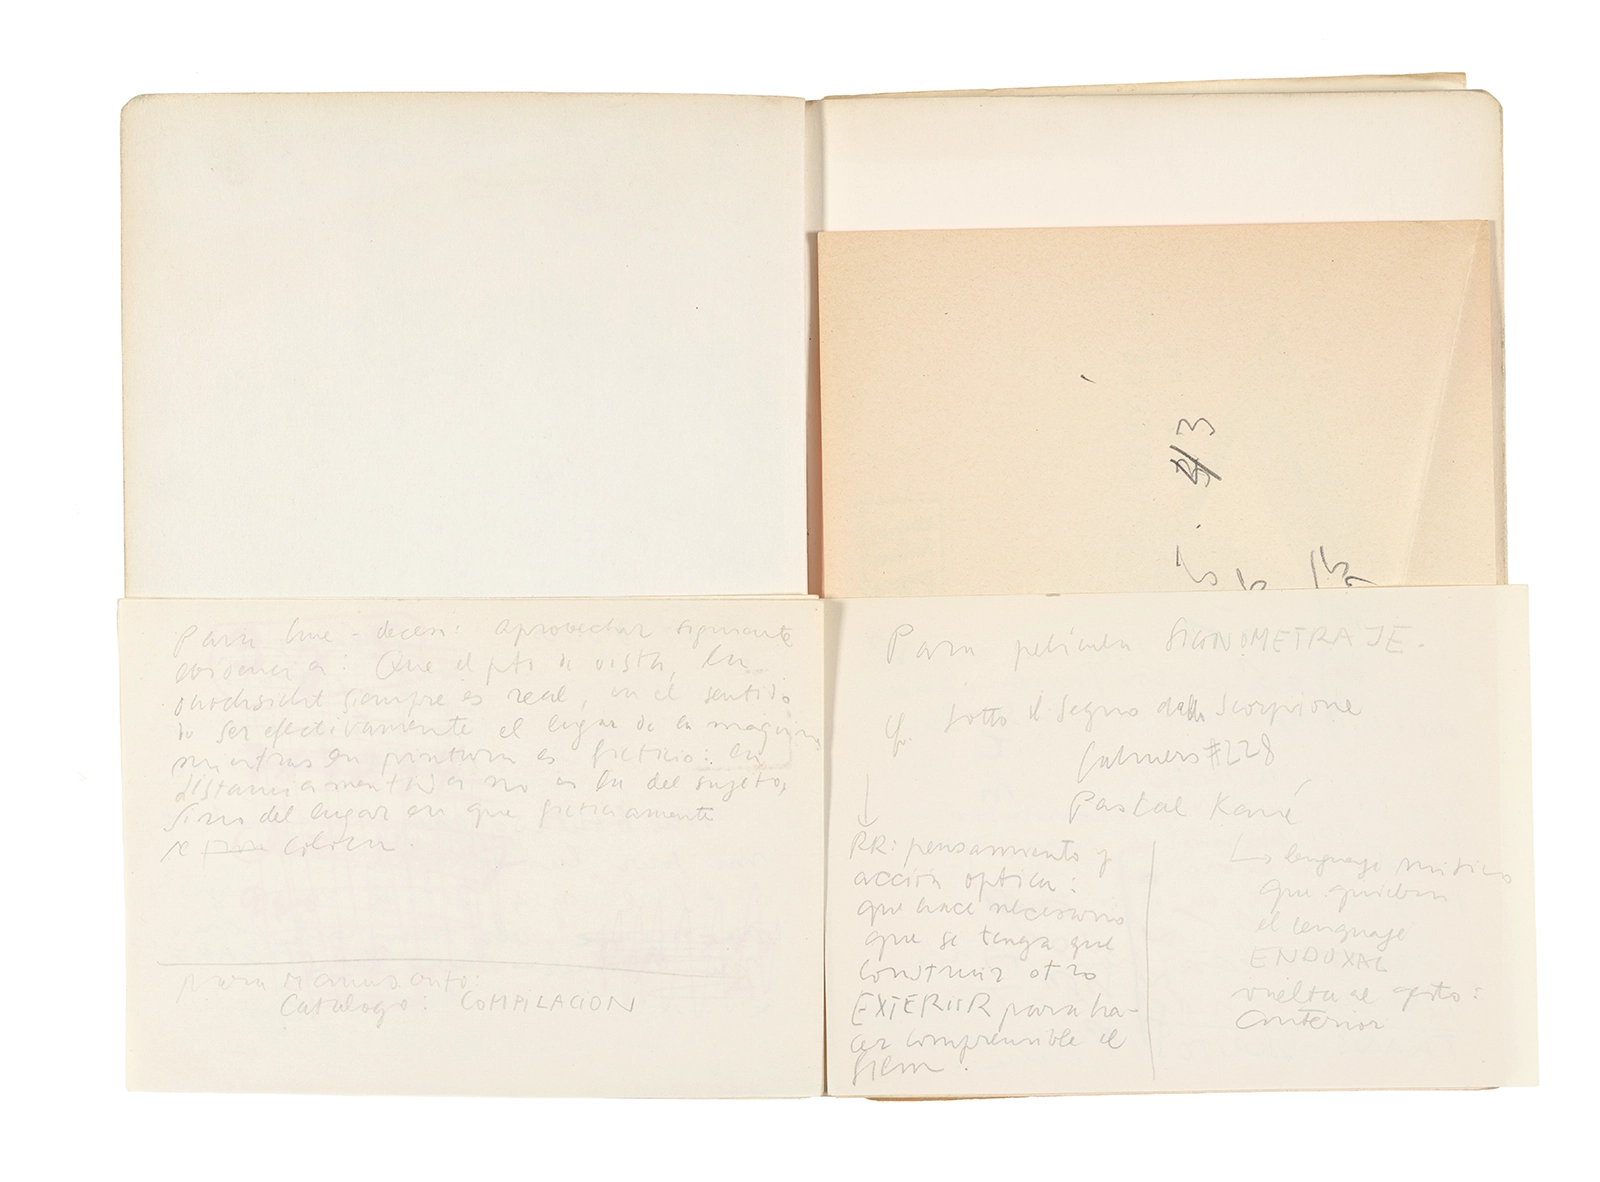 Para cine - decen: aprovechar siguiente
evidencia: Que el pto de vista, la
siempre es real, en el sentido
de ser efectivamente el lugar de la maquina
mientras en pintura es ficticio: la
distanciamentidad no es la del sujeto,
sino del lugar en que ficticiamente
se coloca.
para Manuscrito:
Catálogo: COMPILACION
3
Para película SIGNOMETRAJE.
cf. Sotto il Segno dello Scorpione
Cahiers #228
Pascal Kané
RR: pensamiento y
acción optica:
que hace necesario
que se tenga que
construir otro
EXTERIOR para ha-
cer comprensible el
film.
Lo lenguaje músico
que quiebra
el lenguaje
ENDOXAL
vuelta al gesto:
anterior